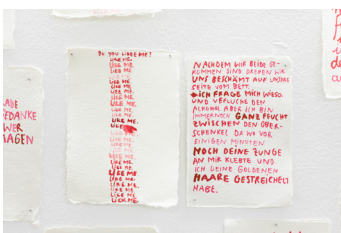 LADE
EDANKE
WER
AGEN
DO YOU LIKE ME?
LIKE ME.
LIKE ME.
LIKE ME.
LIKE ME.
LIKE ME.
LIKE ME.
LIKE ME.
LIKE ME.
LIKE ME.
LIKE ME.
LIKE
LIKE ME.
LIKE ME.
LIKE ME.
LIKE ME.
LIKE ME.
LIKE ME.
LIKE ME.
LIKE ME.
LICK ME.
NACHDEM WIR BEIDE GE-
KOMMEN SIND DREHEN WIR
UNS BESCHÄMT AUF UNSERE
SEITE VOM BETT.
ICH FRAGE MICH WIESO
UND VERFLUCHE DEN
ALKOHOL ABER ICH BIN
IMMERNOCH GANZ FEUCHT
ZWISCHEN DEN OBER-
SCHENKEL DA WO VOR
EINIGEN MINUTEN
NOCH DEINE ZUNGE
AN MIR KLEBTE UND
ICH DEINE GOLDENEN
HAARE GESTREICHELT
HABE.